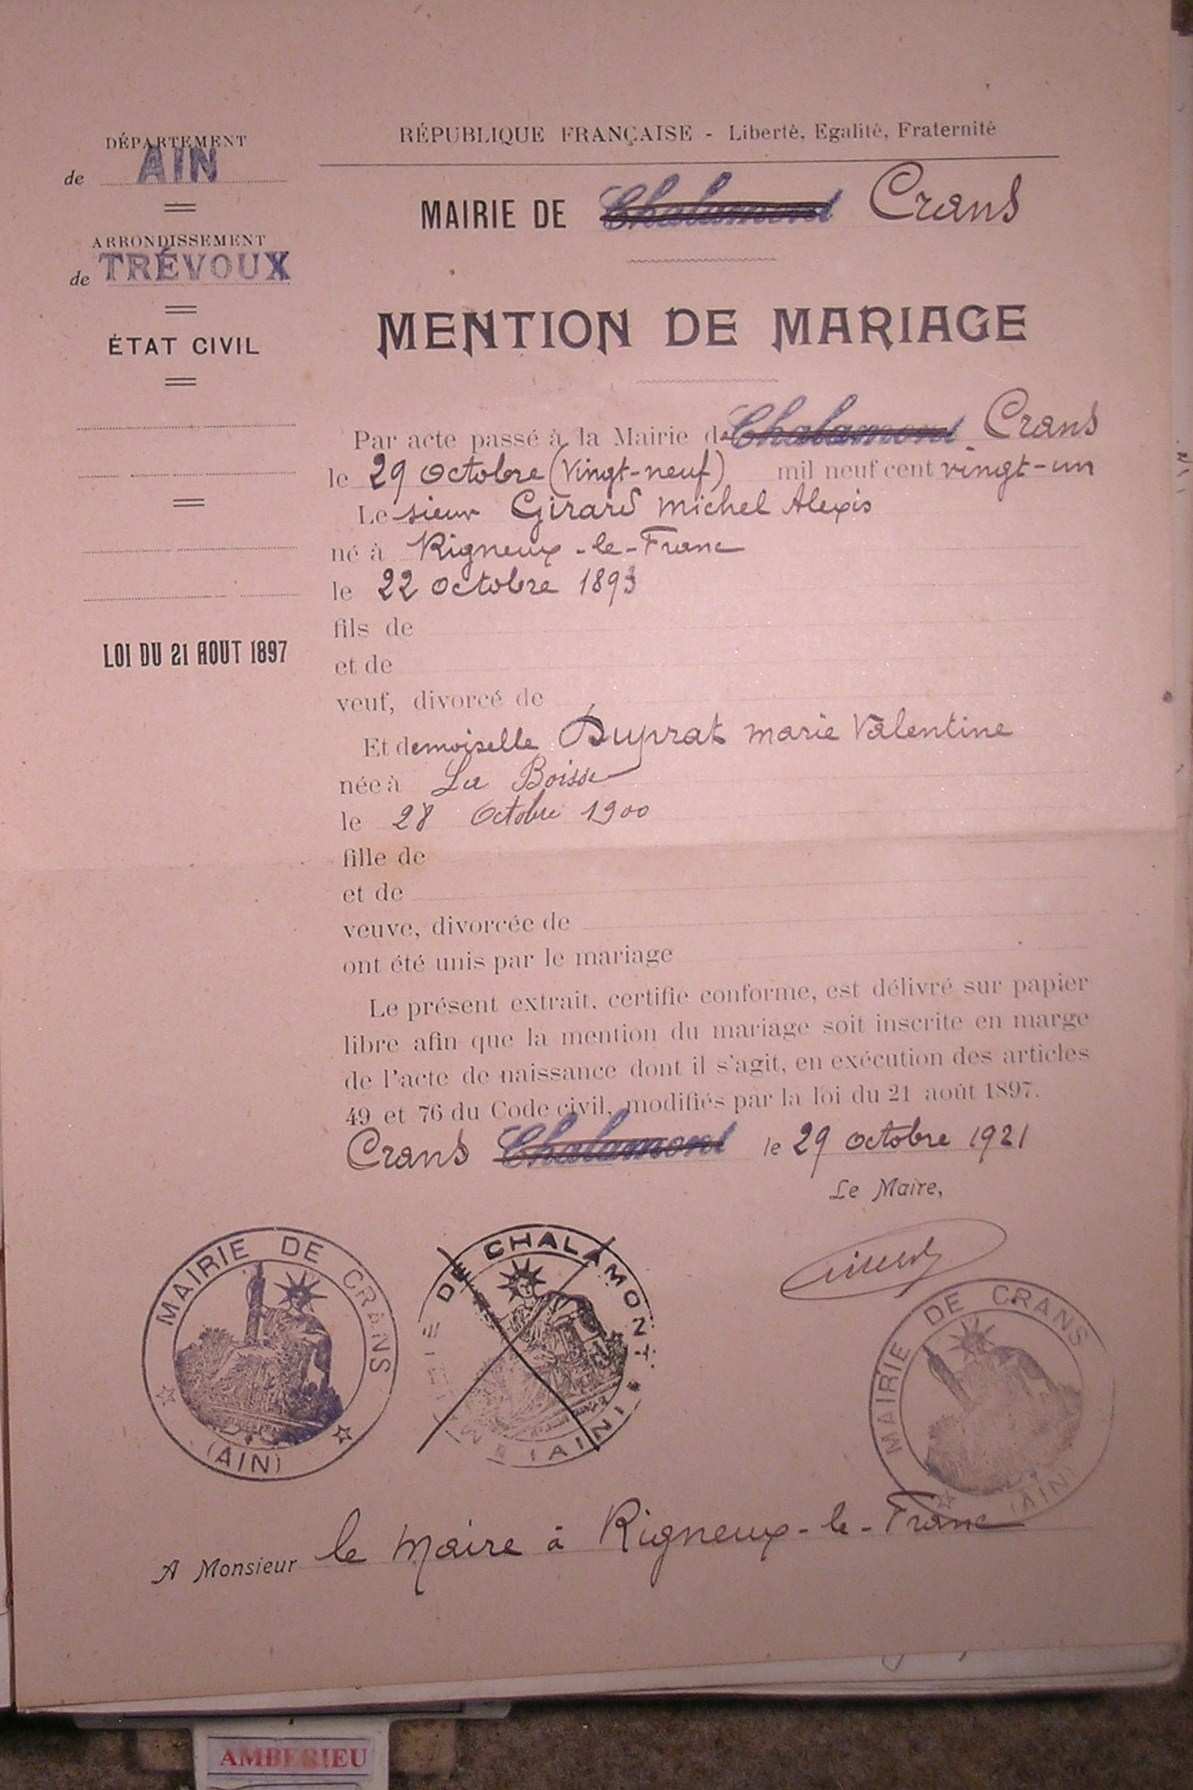 DÉPARTEMENT
de AIN
ARRONDISSEMENT
de TRÉVOUX
ÉTAT CIVIL
LOI DU 21 AOUT 1897
RÉPUBLIQUE FRANÇAISE - Liberté, Egalité, Fraternité
MAIRIE DE Chalamont Crans
MENTION DE MARIAGE
Par acte passé à la Mairie de Chalamont Crans
le 29 octobre (vingt-neuf) mil neuf cent vingt-un
Le sieur Girard Michel Alexis
né à Rigneux-le-Franc
le 22 octobre 1893
fils de
et de
veuf, divorcé de
Et demoiselle Duprat marie Valentine
née à La Boisse
le 28 Octobre 1900
fille de
et de
veuve, divorcée de
ont été unis par le mariage
Le présent extrait, certifié conforme, est délivré sur papier
libre afin que la mention du mariage soit inscrite en marge
de l'acte de naissance dont il s'agit, en exécution des articles
49 et 76 du Code civil, modifiés par la loi du 21 août 1897.
Crans Chalamont le 29 octobre 1921
Le Maire,
MAIRIE DE CRANS
(AIN)
MAIRIE DE CHALAMONT
(AIN)
MAIRIE DE CRANS
(AIN)
A Monsieur le Maire à Rigneux-le-Franc
AMBERIEU